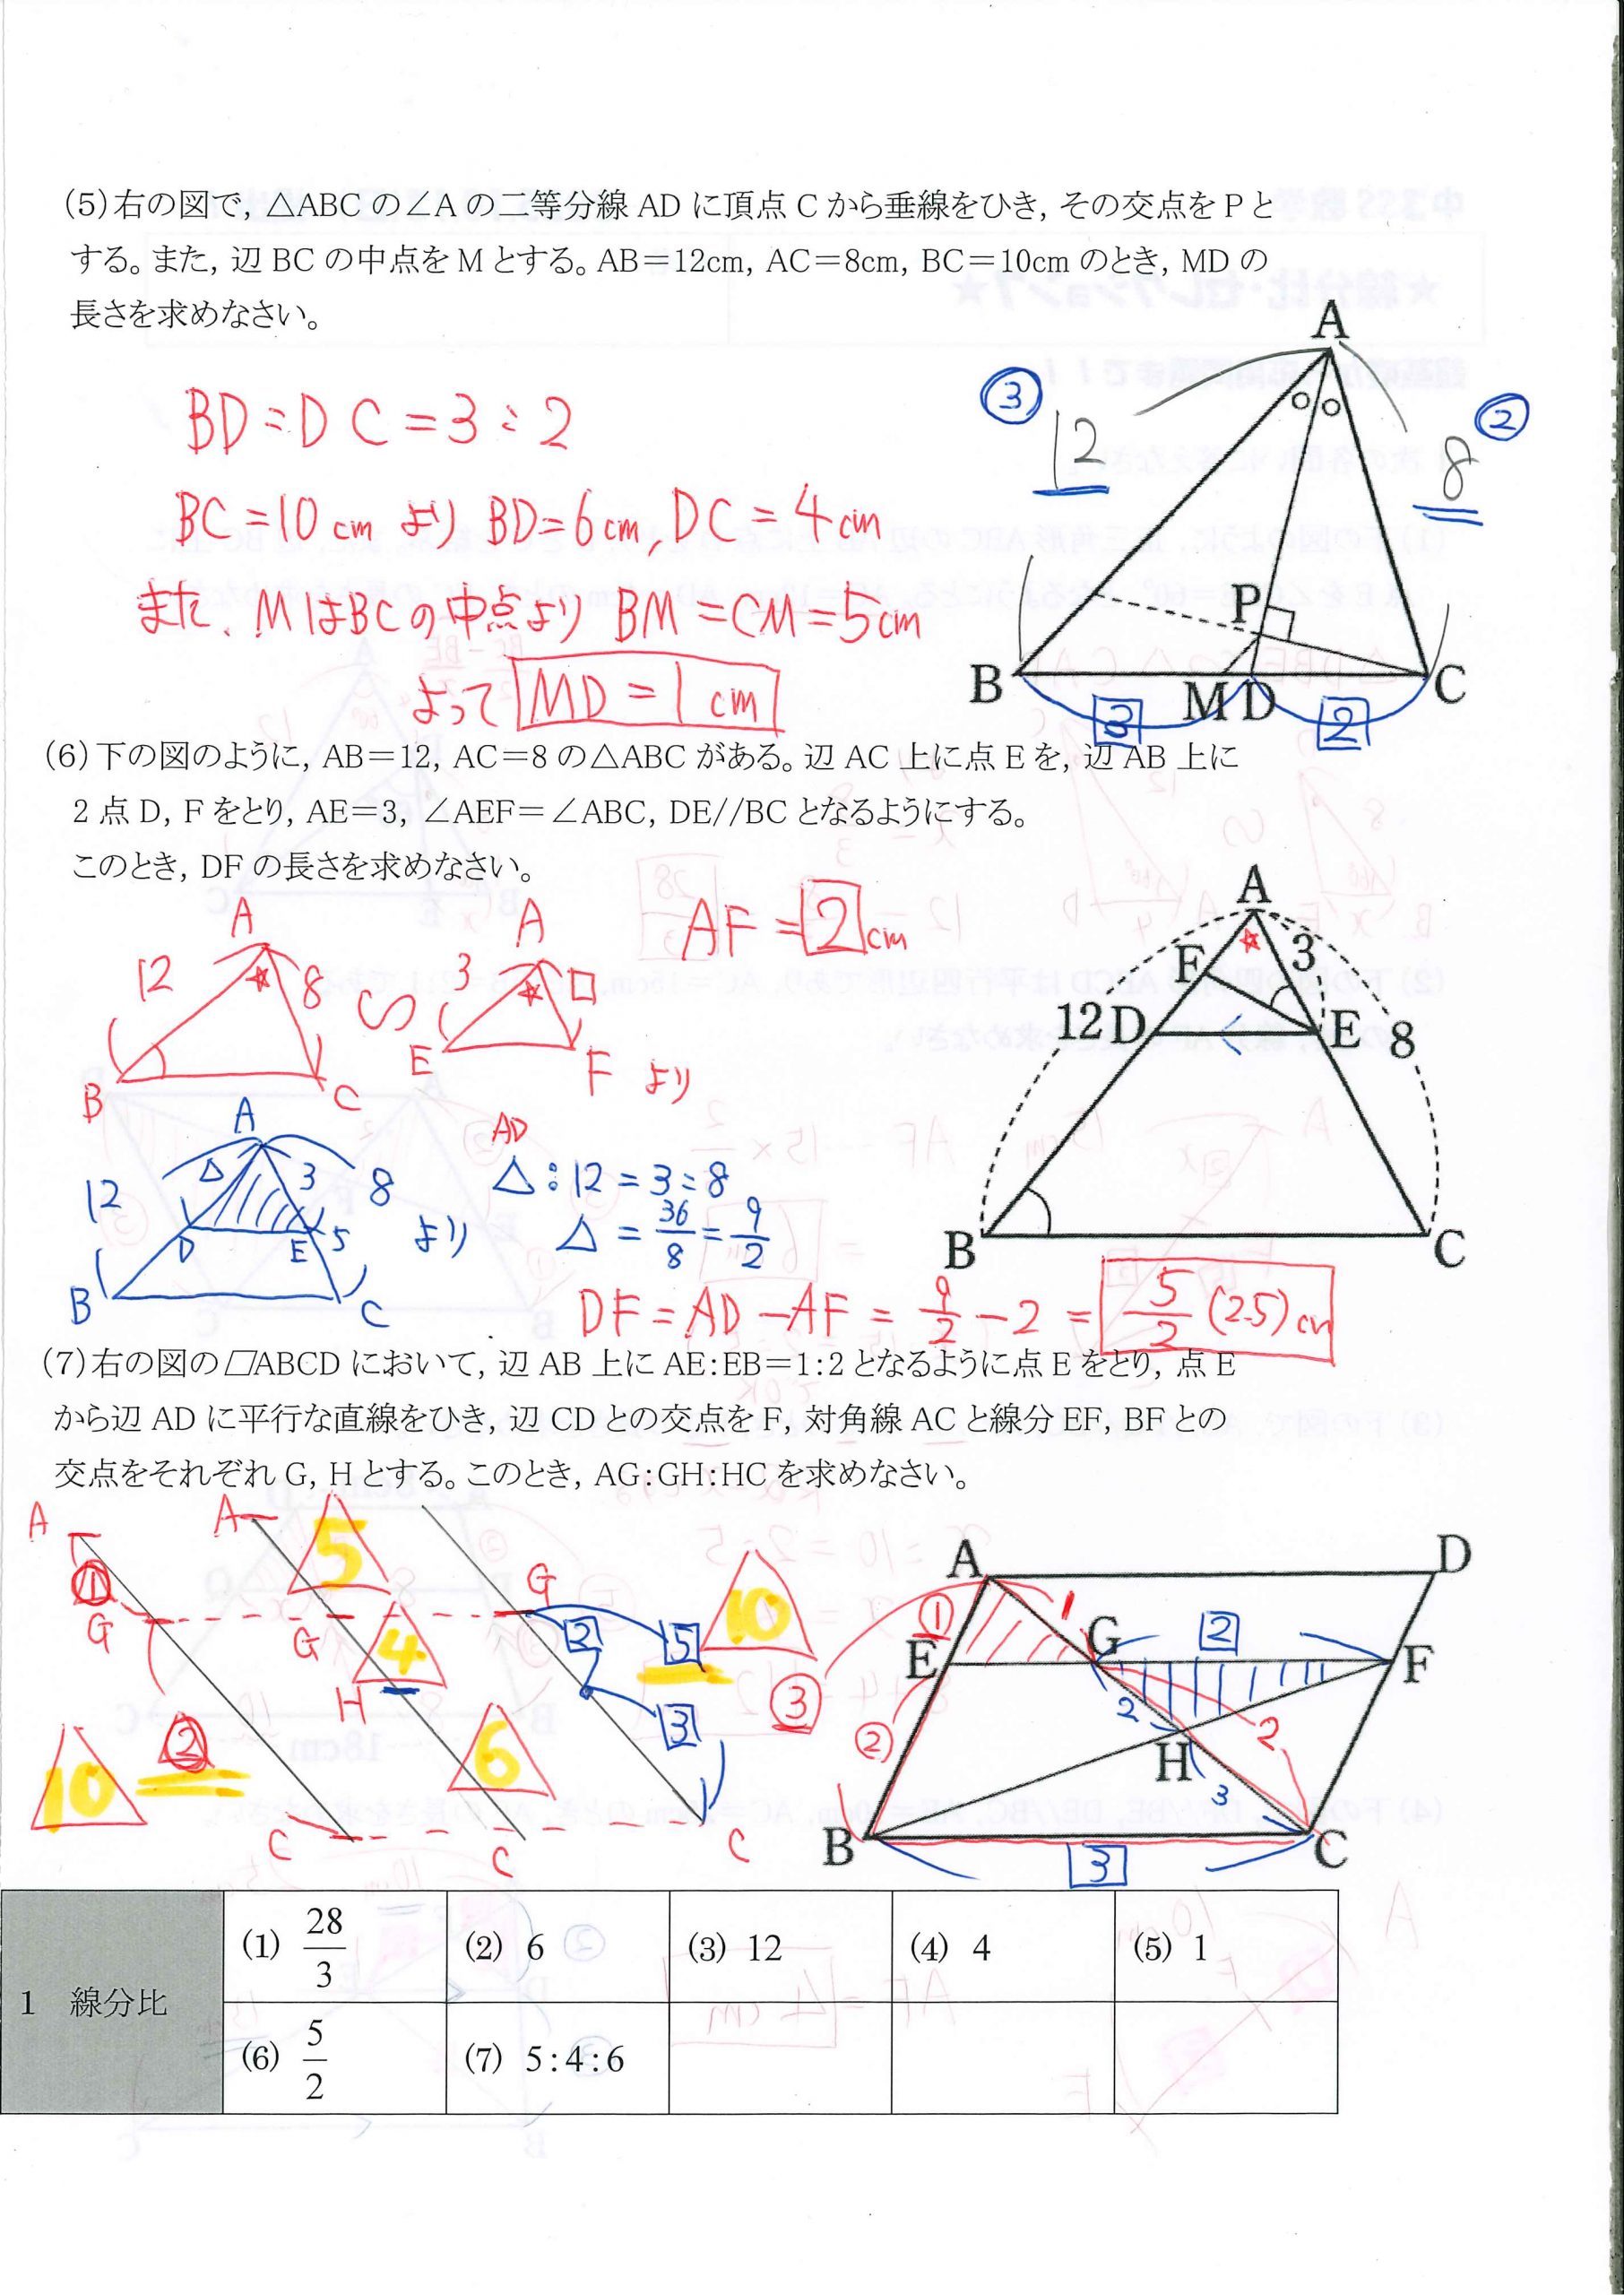 (5)右の図で, △ABC の∠A の二等分線 AD に頂点 C から垂線をひき, その交点を P と
する。また, 辺 BC の中点を M とする。AB=12cm, AC=8cm, BC=10cm のとき, MD の
長さを求めなさい。
BD:DC=3:2
BC=10cm より BD=6cm, DC=4cm
また、MはBCの中点より BM=CM=5cm
よって MD=1cm
A
③
12
②
8
P
B
M D
C
3
2
(6)下の図のように, AB=12, AC=8 の△ABC がある。辺 AC 上に点 E を, 辺 AB 上に
2 点 D, F をとり, AE=3, ∠AEF=∠ABC, DE//BC となるようにする。
このとき, DF の長さを求めなさい。
A
12
8
B
C
∽
A
3
□
E
F より
AF=2cm
A
12
△
3
8
D
E
5
B
C
より
AD
△:12=3:8
△=36/8=9/2
DF=AD-AF=9/2-2=5/2(2.5)cm
A
F
3
12
D
E
8
B
C
(7)右の図の▱ABCD において, 辺 AB 上に AE:EB=1:2 となるように点 E をとり, 点 E
から辺 AD に平行な直線をひき, 辺 CD との交点を F, 対角線 AC と線分 EF, BF との
交点をそれぞれ G, H とする。このとき, AG:GH:HC を求めなさい。
A
①
G
②
10
C
A
5
G
4
H
6
C
G
2
5
10
3
C
A
D
①
1
G
2
E
F
③
②
2
2
H
3
B
3
C
1 線分比
(1) 28/3
(2) 6
(3) 12
(4) 4
(5) 1
(6) 5/2
(7) 5:4:6